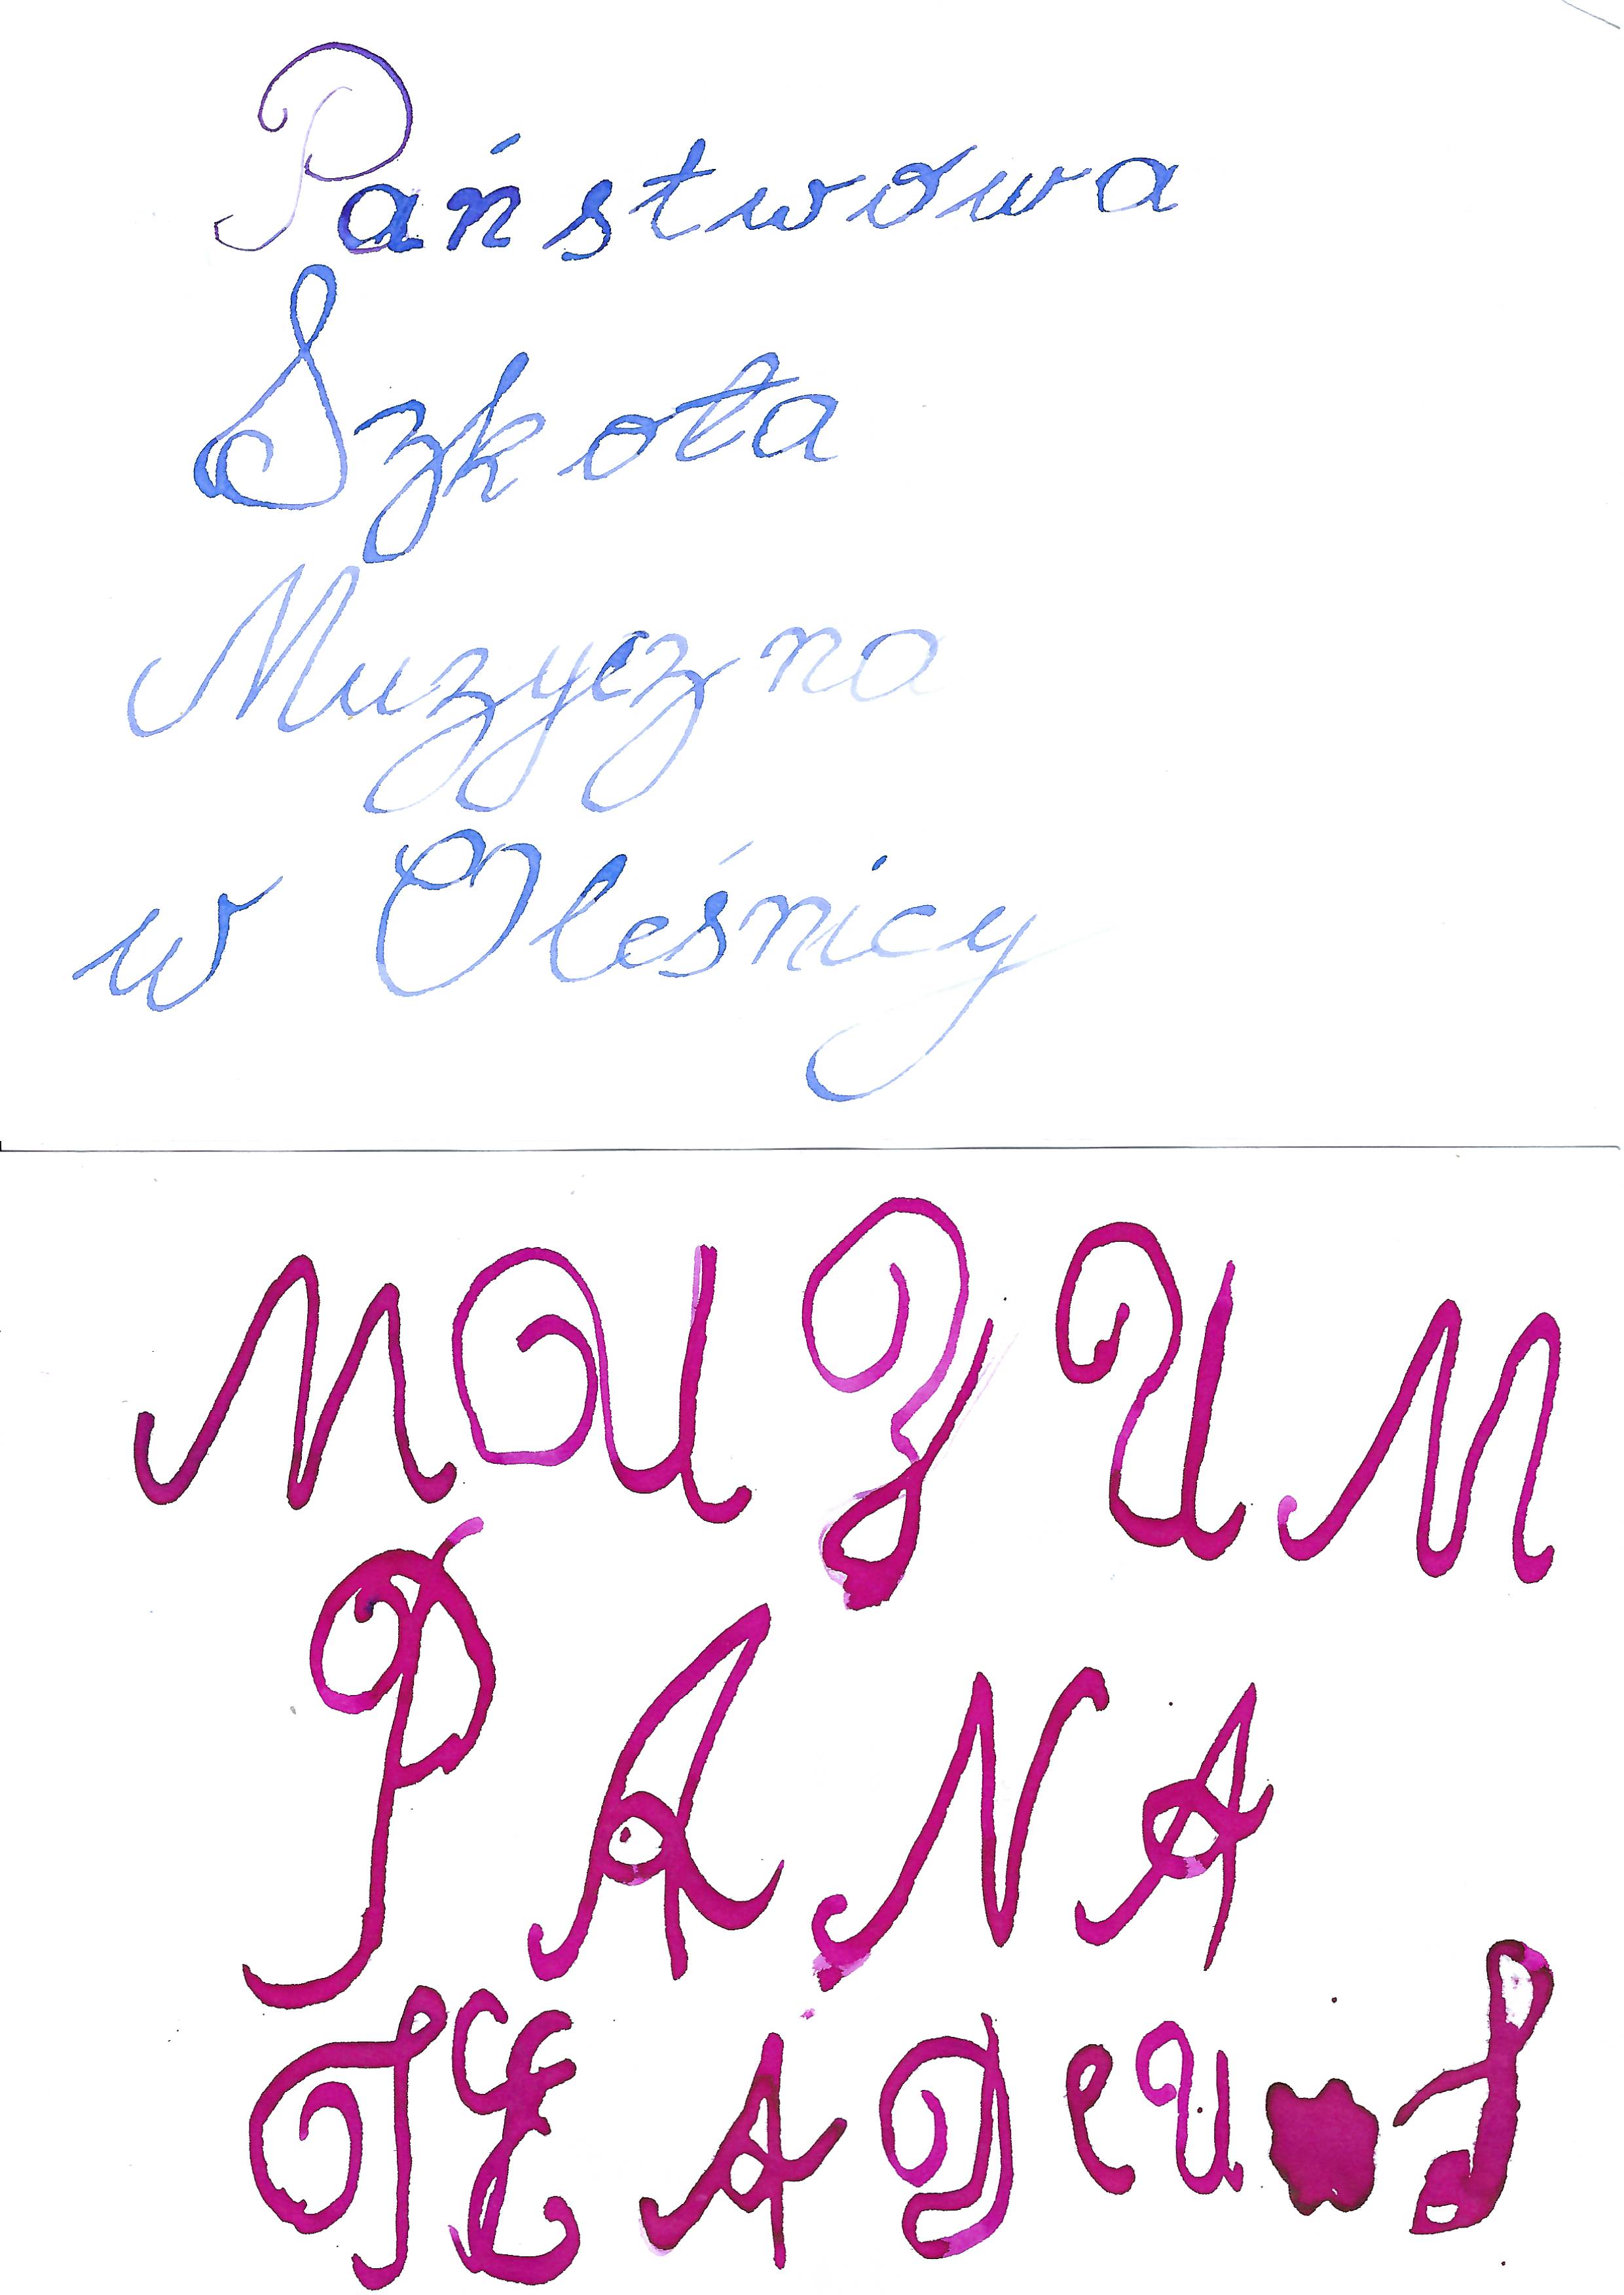 Państwowa
Szkoła
Muzyczna
w Oleśnicy
MUZUM
PANA